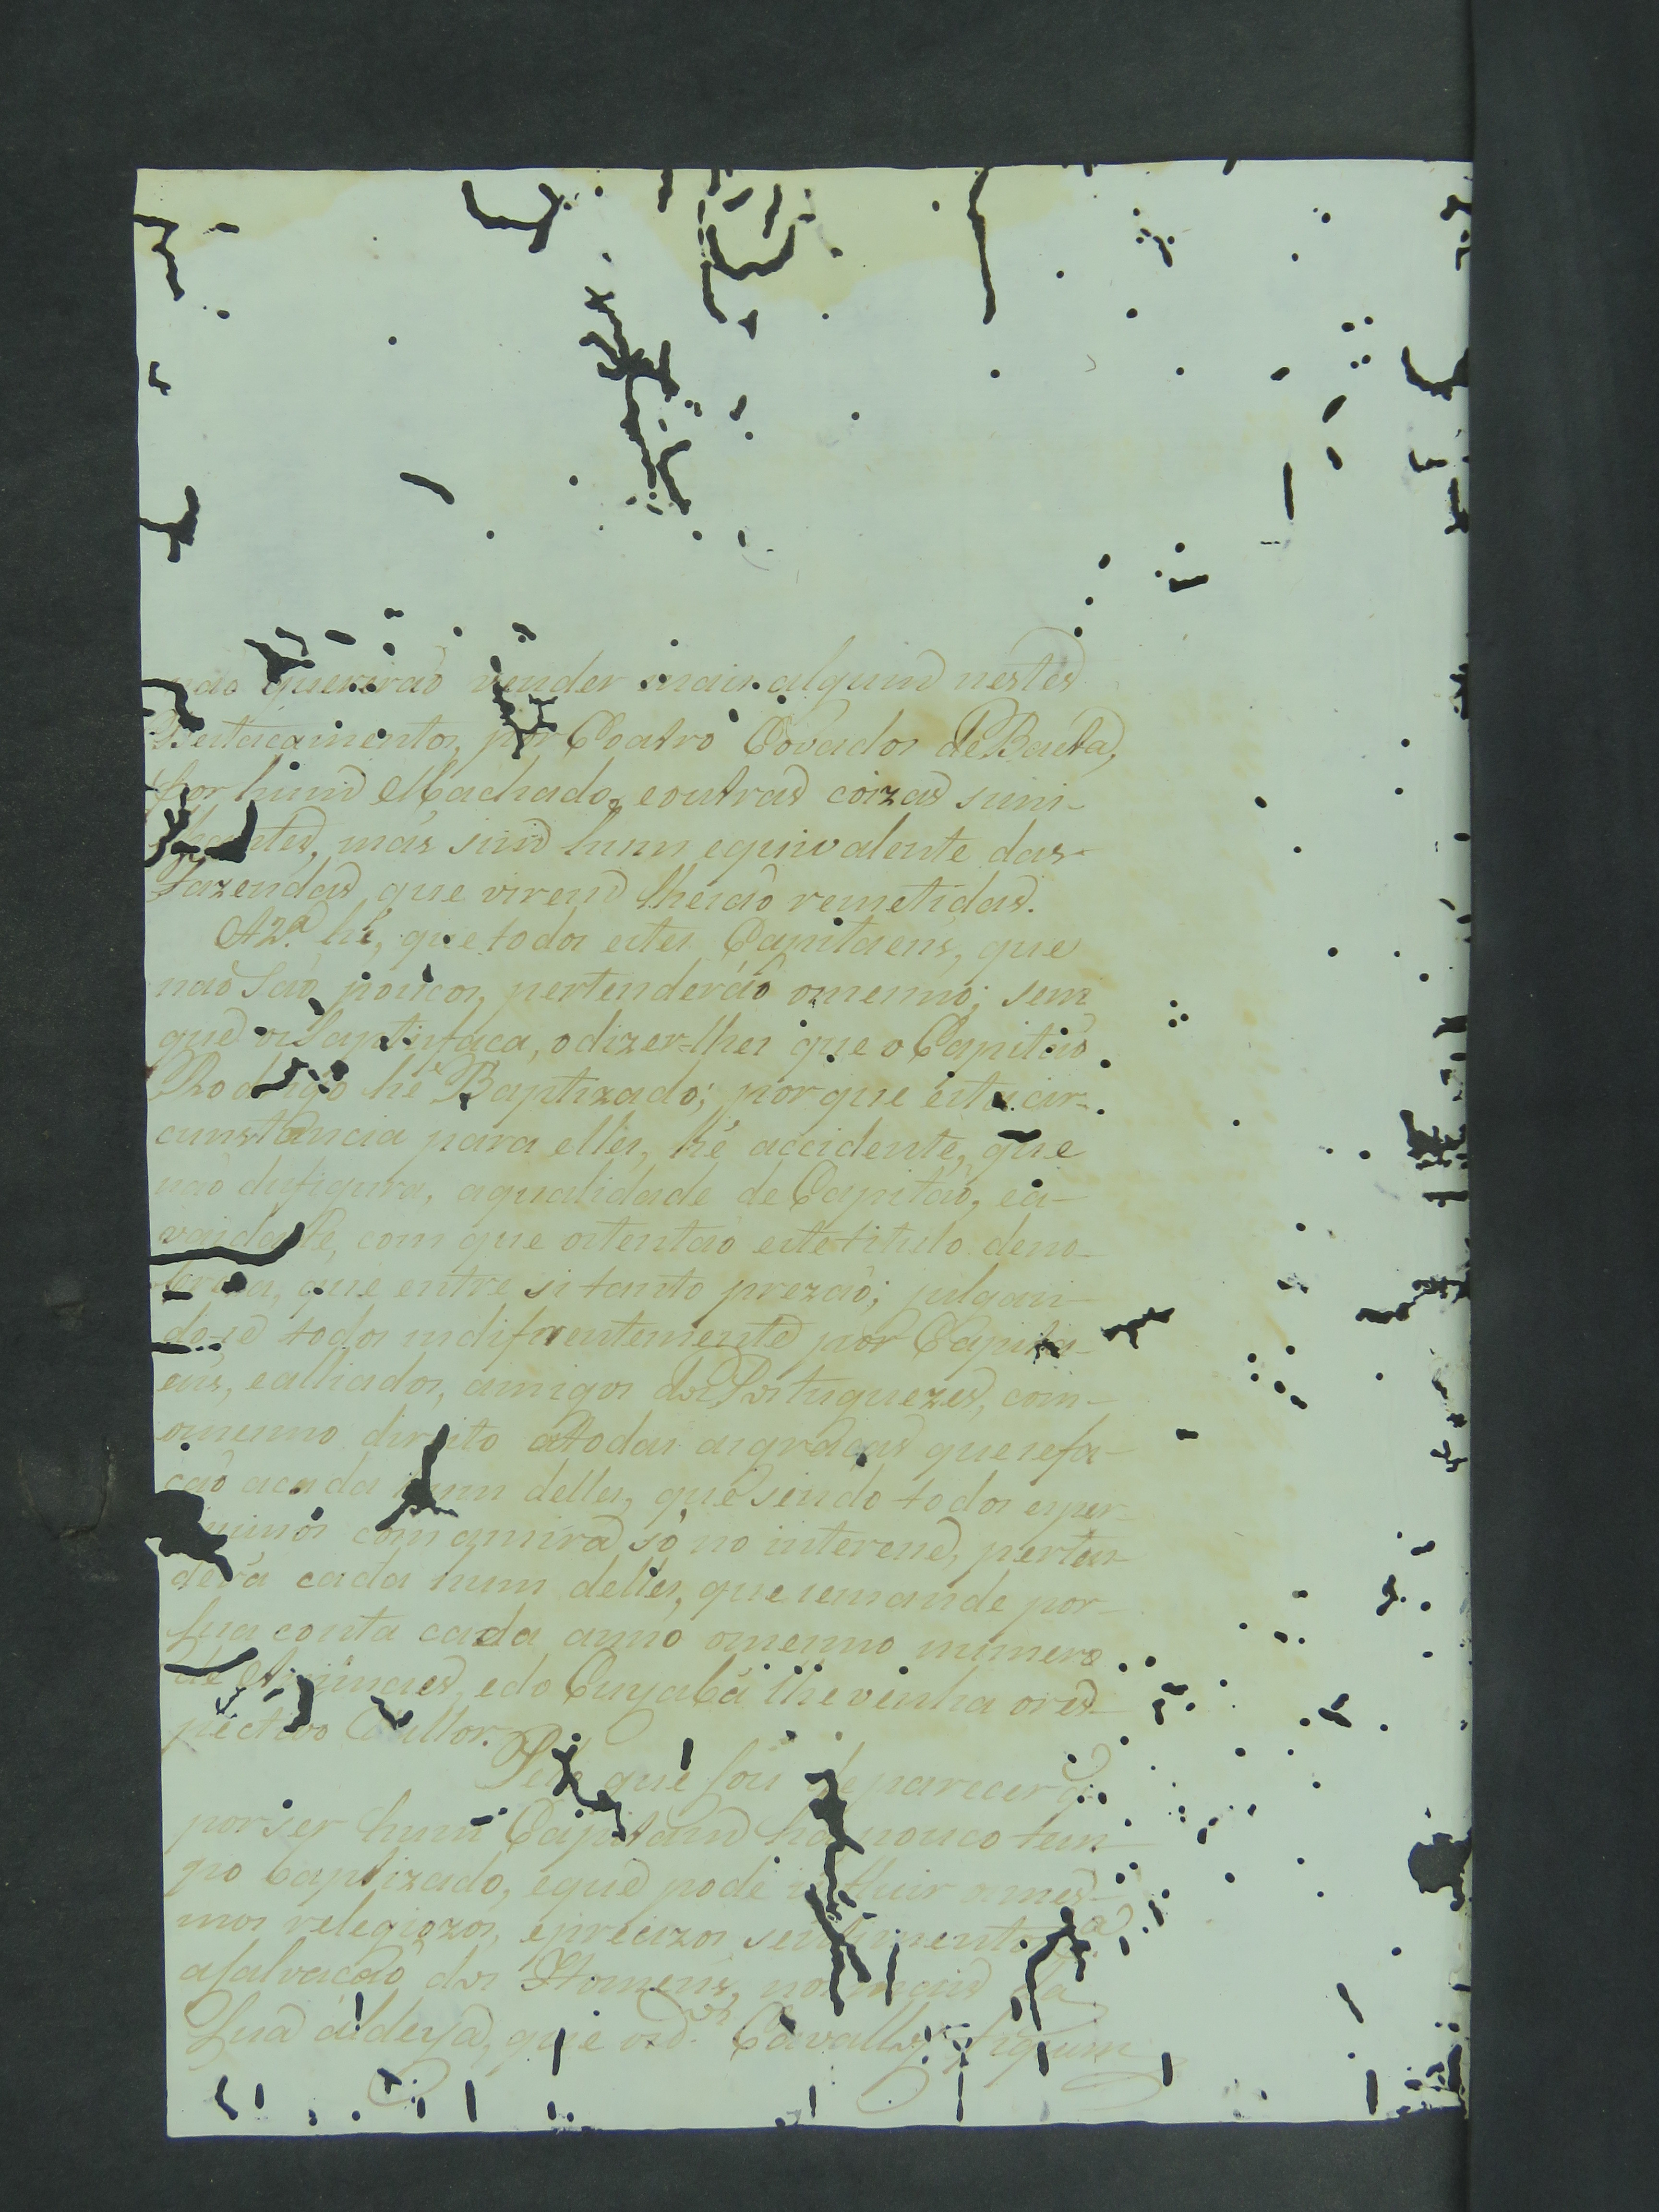 não quererão vender mais algum nestes
Destacamentos, por Coatro Covados de Baeta,
por hum Machado, e outras coizas simi-
lhantes, más sim hum equivalente das
Fazendas que virem lhe são remetidas.
A 2.ª hé, que todos estes Capitaens, que
não São poucos, pertenderáõ omesmo; sem
que os Saptisfaca, o dizer=lhes que o Capitão
Rodrigo hé Baptizado; porque esta cir-
cunstancia para elles, hé accidente, que
não disfigura, aqualidade de Capitão, ea-
vaidade, com que ostentão este titulo deno-
breza, que entre si tanto prezão; julgan-
dose todos indifrentemente por Capita-
ens, ealliados, amigos dos Portuguezes, com-
omesmo direito atodas asgraças que sefa-
ção acada hum delles, que sendo todos
com amira só no interece, perten-
derá cada hum delles, que semande por-
Sua conta cada anno omesmo numero
de edo Cuyabá lhe venha ores-
pectivo Vallor.
Pelo que sou de parecer q.
por ser hum Capitam ha pouco tem-
po baptizado, eque pode os mes-
mos relegiozos, eprecizos sentimentos p.ª
aSalvação dos Homens, nos mais da
Sua aldeya, que os d.os Cavallos fiquem